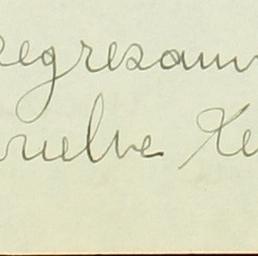 regresam
vuelve Te